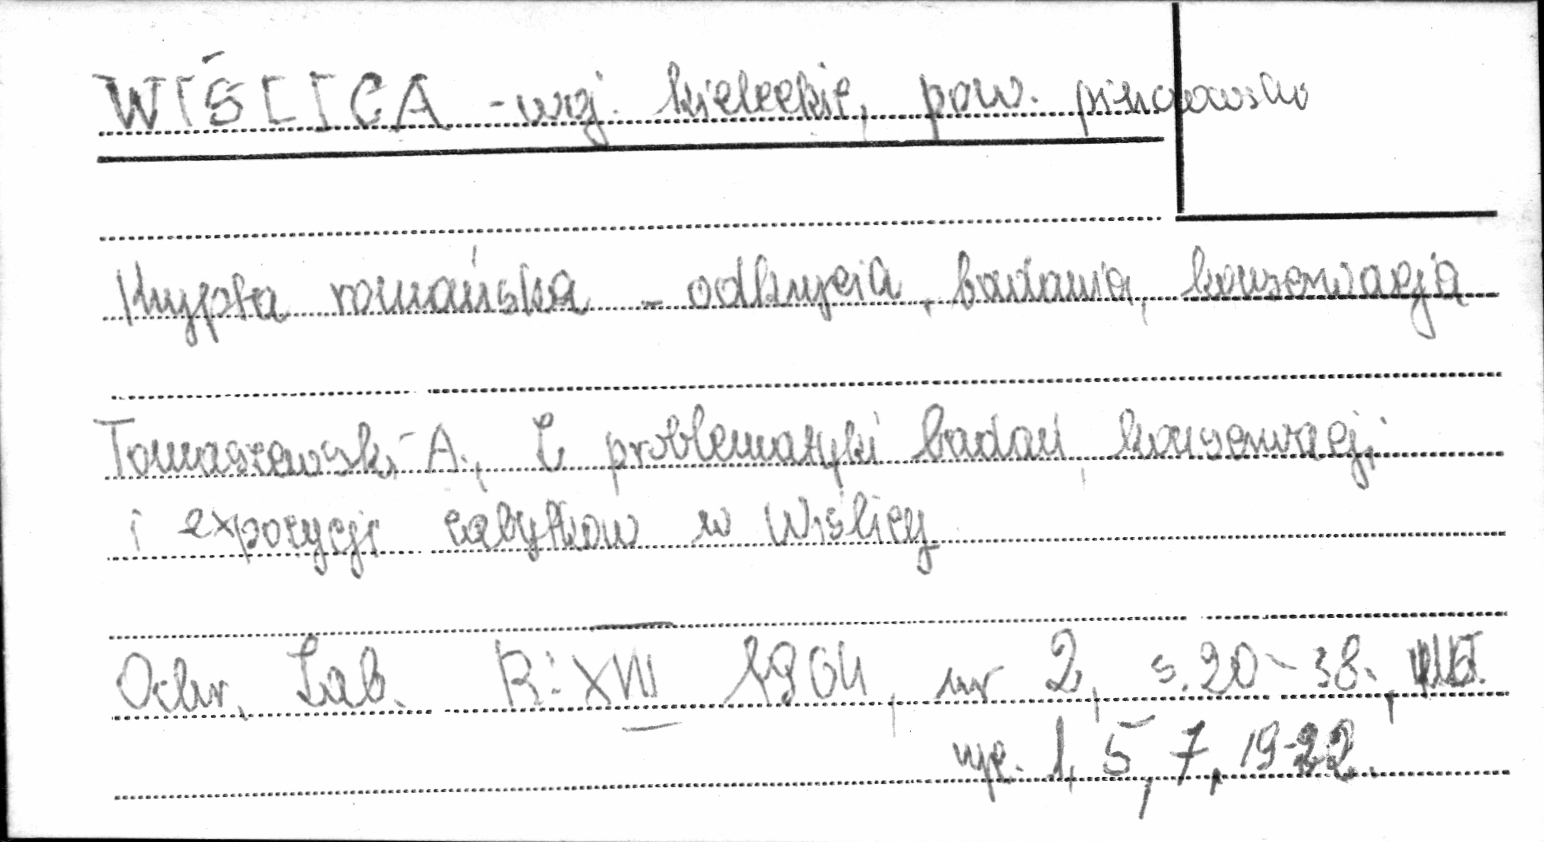 WIŚLICA - woj. kieleckie, pow. pińczowski
Krypta romańska - odkrycia, badania, konserwacja
Tomaszewski A., Z problematyki badań, konserwacji
i expozycji zabytków w Wiślicy
Ochr. Zab. R: XVII 1964, nr 2, s. 20-38,
ryc. 1, 5, 7, 19-22.